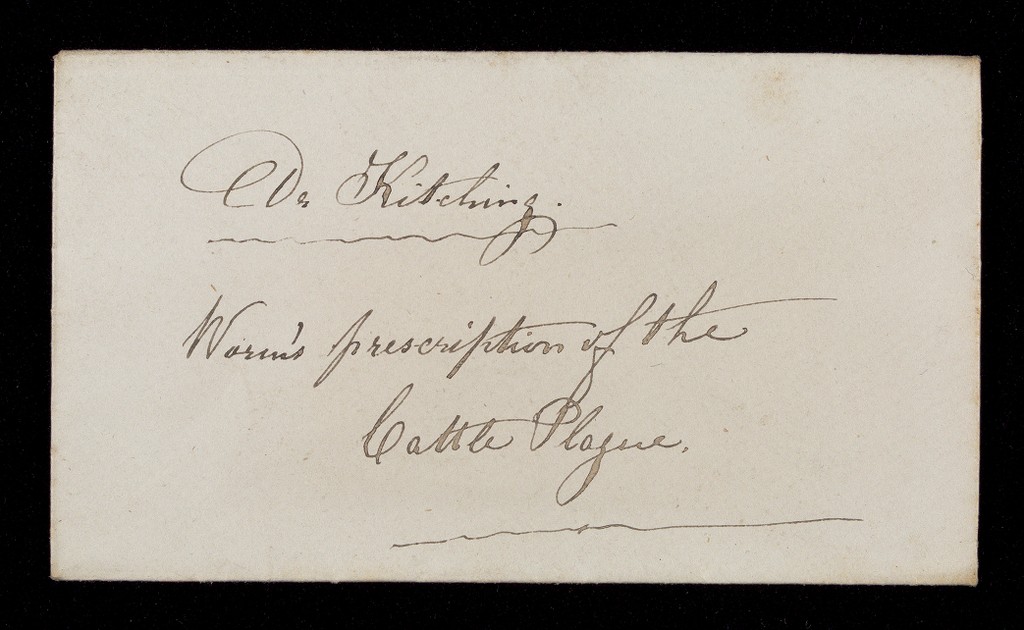 Dr Kitching.
Worm's prescription of the
Cattle Plague.